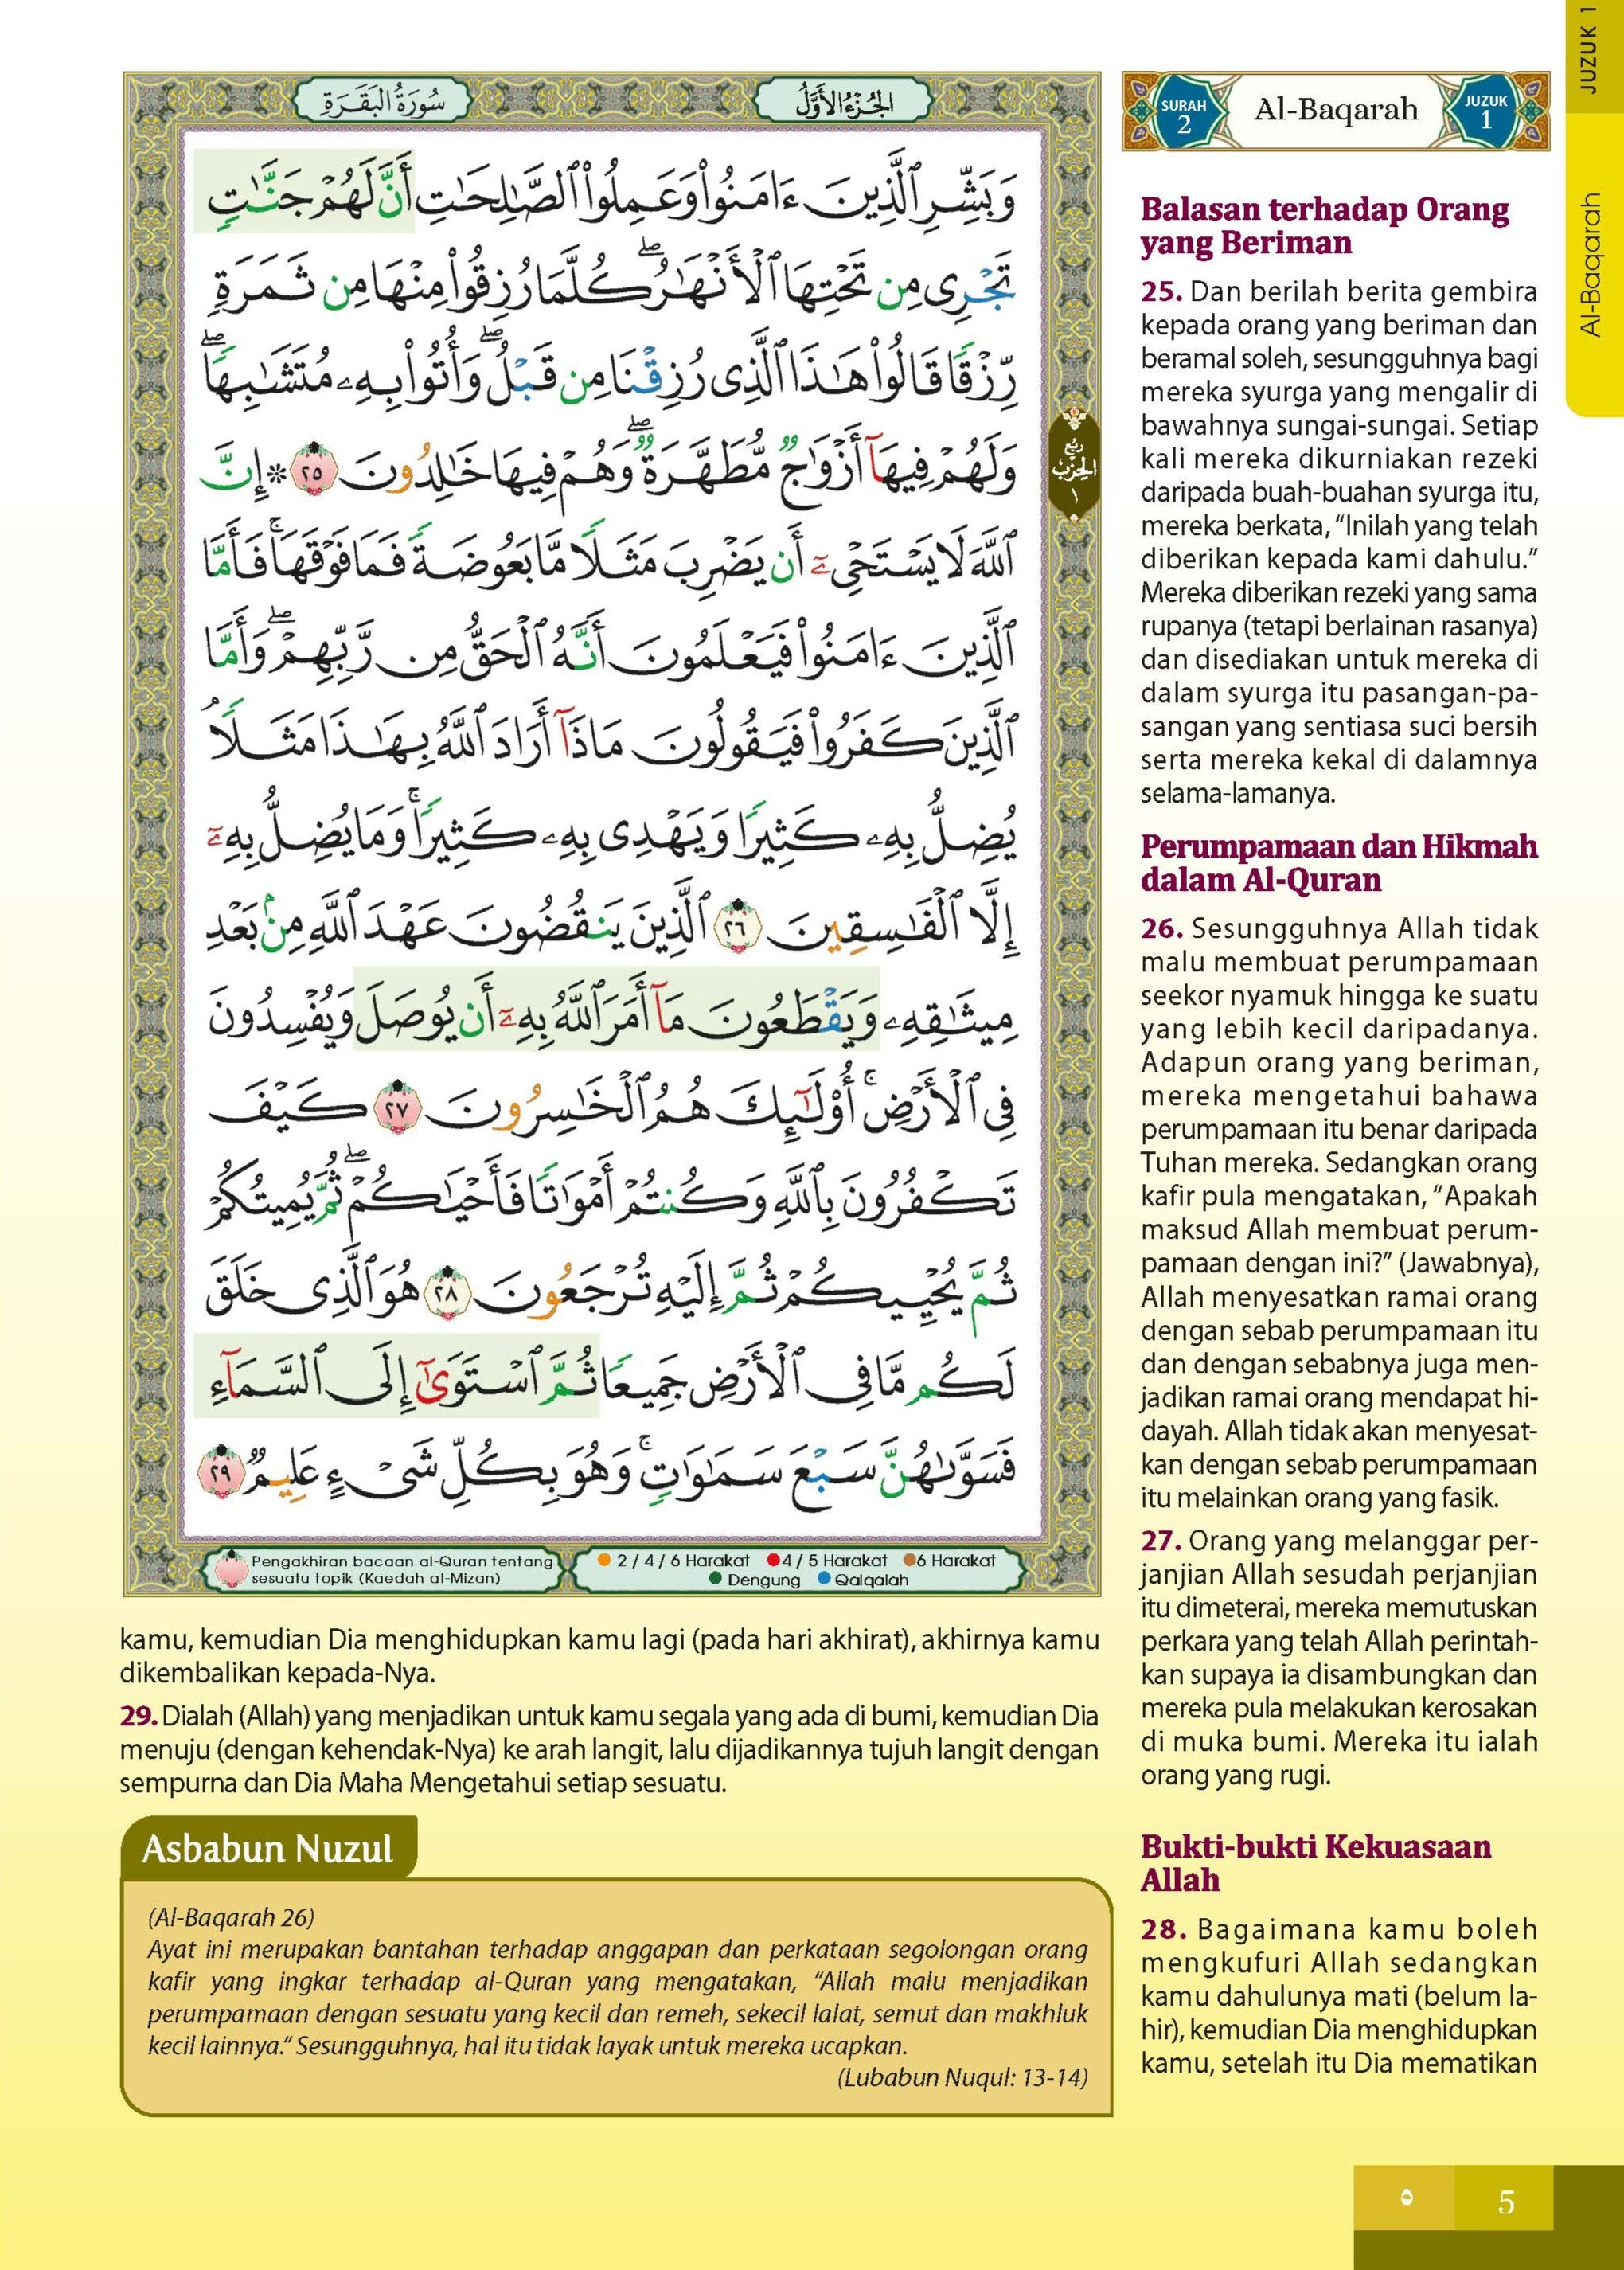 سُورَةُ البَقَرَةِ
الجُزْءُ الأَوَّلُ
وَبَشِّرِ ٱلَّذِينَ ءَامَنُوا۟ وَعَمِلُوا۟ ٱلصَّـٰلِحَـٰتِ أَنَّ لَهُمْ جَنَّـٰتٍ
تَجْرِى مِن تَحْتِهَا ٱلْأَنْهَـٰرُ ۖ كُلَّمَا رُزِقُوا۟ مِنْهَا مِن ثَمَرَةٍ
رِّزْقًا قَالُوا۟ هَـٰذَا ٱلَّذِى رُزِقْنَا مِن قَبْلُ ۖ وَأُتُوا۟ بِهِۦ مُتَشَـٰبِهًا ۖ
وَلَهُمْ فِيهَآ أَزْوَٰجٌ مُّطَهَّرَةٌ ۖ وَهُمْ فِيهَا خَـٰلِدُونَ ٢٥ * إِنَّ
ٱللَّهَ لَا يَسْتَحْىِۦٓ أَن يَضْرِبَ مَثَلًا مَّا بَعُوضَةً فَمَا فَوْقَهَا ۚ فَأَمَّا
ٱلَّذِينَ ءَامَنُوا۟ فَيَعْلَمُونَ أَنَّهُ ٱلْحَقُّ مِن رَّبِّهِمْ ۖ وَأَمَّا
ٱلَّذِينَ كَفَرُوا۟ فَيَقُولُونَ مَاذَآ أَرَادَ ٱللَّهُ بِهَـٰذَا مَثَلًا ۘ
يُضِلُّ بِهِۦ كَثِيرًا وَيَهْدِى بِهِۦ كَثِيرًا ۚ وَمَا يُضِلُّ بِهِۦٓ
إِلَّا ٱلْفَـٰسِقِينَ ٢٦ ٱلَّذِينَ يَنقُضُونَ عَهْدَ ٱللَّهِ مِنۢ بَعْدِ
مِيثَـٰقِهِۦ وَيَقْطَعُونَ مَآ أَمَرَ ٱللَّهُ بِهِۦٓ أَن يُوصَلَ وَيُفْسِدُونَ
فِى ٱلْأَرْضِ ۚ أُو۟لَـٰٓئِكَ هُمُ ٱلْخَـٰسِرُونَ ٢٧ كَيْفَ
تَكْفُرُونَ بِٱللَّهِ وَكُنتُمْ أَمْوَٰتًا فَأَحْيَـٰكُمْ ۖ ثُمَّ يُمِيتُكُمْ
ثُمَّ يُحْيِيكُمْ ثُمَّ إِلَيْهِ تُرْجَعُونَ ٢٨ هُوَ ٱلَّذِى خَلَقَ
لَكُم مَّا فِى ٱلْأَرْضِ جَمِيعًا ثُمَّ ٱسْتَوَىٰٓ إِلَى ٱلسَّمَآءِ
فَسَوَّىٰهُنَّ سَبْعَ سَمَـٰوَٰتٍ ۚ وَهُوَ بِكُلِّ شَىْءٍ عَلِيمٌ ٢٩
رُبْعُ
الحِزْبِ
١
Pengakhiran bacaan al-Quran tentang
sesuatu topik (Kaedah al-Mizan)
2 / 4 / 6 Harakat 4 / 5 Harakat 6 Harakat
Dengung Qalqalah
SURAH
2
Al-Baqarah
JUZUK
1
Balasan terhadap Orang
yang Beriman
25. Dan berilah berita gembira
kepada orang yang beriman dan
beramal soleh, sesungguhnya bagi
mereka syurga yang mengalir di
bawahnya sungai-sungai. Setiap
kali mereka dikurniakan rezeki
daripada buah-buahan syurga itu,
mereka berkata, "Inilah yang telah
diberikan kepada kami dahulu."
Mereka diberikan rezeki yang sama
rupanya (tetapi berlainan rasanya)
dan disediakan untuk mereka di
dalam syurga itu pasangan-pa-
sangan yang sentiasa suci bersih
serta mereka kekal di dalamnya
selama-lamanya.
Perumpamaan dan Hikmah
dalam Al-Quran
26. Sesungguhnya Allah tidak
malu membuat perumpamaan
seekor nyamuk hingga ke suatu
yang lebih kecil daripadanya.
Adapun orang yang beriman,
mereka mengetahui bahawa
perumpamaan itu benar daripada
Tuhan mereka. Sedangkan orang
kafir pula mengatakan, "Apakah
maksud Allah membuat perum-
pamaan dengan ini?" (Jawabnya),
Allah menyesatkan ramai orang
dengan sebab perumpamaan itu
dan dengan sebabnya juga men-
jadikan ramai orang mendapat hi-
dayah. Allah tidak akan menyesat-
kan dengan sebab perumpamaan
itu melainkan orang yang fasik.
27. Orang yang melanggar per-
janjian Allah sesudah perjanjian
itu dimeterai, mereka memutuskan
perkara yang telah Allah perintah-
kan supaya ia disambungkan dan
mereka pula melakukan kerosakan
di muka bumi. Mereka itu ialah
orang yang rugi.
Bukti-bukti Kekuasaan
Allah
28. Bagaimana kamu boleh
mengkufuri Allah sedangkan
kamu dahulunya mati (belum la-
hir), kemudian Dia menghidupkan
kamu, setelah itu Dia mematikan
kamu, kemudian Dia menghidupkan kamu lagi (pada hari akhirat), akhirnya kamu
dikembalikan kepada-Nya.
29. Dialah (Allah) yang menjadikan untuk kamu segala yang ada di bumi, kemudian Dia
menuju (dengan kehendak-Nya) ke arah langit, lalu dijadikannya tujuh langit dengan
sempurna dan Dia Maha Mengetahui setiap sesuatu.
Asbabun Nuzul
(Al-Baqarah 26)
Ayat ini merupakan bantahan terhadap anggapan dan perkataan segolongan orang
kafir yang ingkar terhadap al-Quran yang mengatakan, "Allah malu menjadikan
perumpamaan dengan sesuatu yang kecil dan remeh, sekecil lalat, semut dan makhluk
kecil lainnya." Sesungguhnya, hal itu tidak layak untuk mereka ucapkan.
(Lubabun Nuqul: 13-14)
JUZUK 1
Al-Baqarah
٥
5